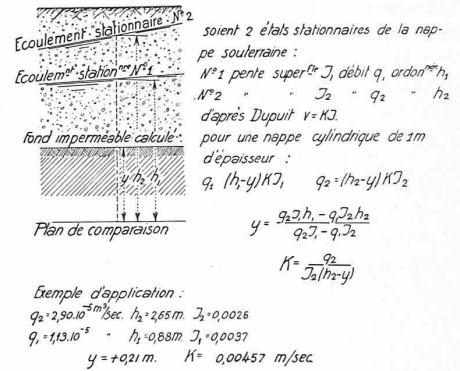 Ecoulement stationnaire N°2
Ecoulemnt stationnaire N°1
Fond imperméable calculé
y h2 h1
Plan de comparaison
soient 2 états stationnaires de la nap-
pe souterraine :
N°1 pente superelle J1 débit q1 ordonnée h1
N°2 " " J2 " q2 " h2
d'après Dupuit v=KJ.
pour une nappe cylindrique de 1m
d'épaisseur :
q1 (h1-y)KJ1 q2=(h2-y)KJ2
y = (q2J1h1 - q1J2h2)/(q2J1 - q1J2)
K = q2/(J2(h2-y))
Exemple d'application :
q2=2,90.10-5 m3/sec. h2=2,65m. J2=0,0026
q1=1,13.10-5 " h1=0,88m. J1=0,0037
y=+0,21m. K= 0,00457 m/sec.